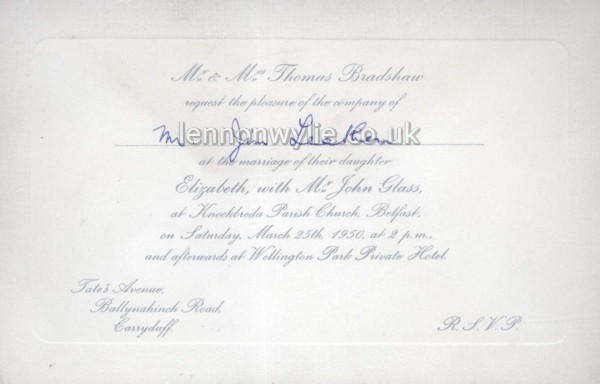 Mr. & Mrs Thomas Bradshaw
request the pleasure of the company of
Mr Jim Leathem
lennonwylie.co.uk
at the marriage of their daughter
Elizabeth, with Mr. John Glass,
at Knockbreda Parish Church, Belfast,
on Saturday, March 25th, 1950, at 2 p.m.,
and afterwards at Wellington Park Private Hotel.
Tate's Avenue,
Ballynahinch Road,
Carryduff.
R.S.V.P.